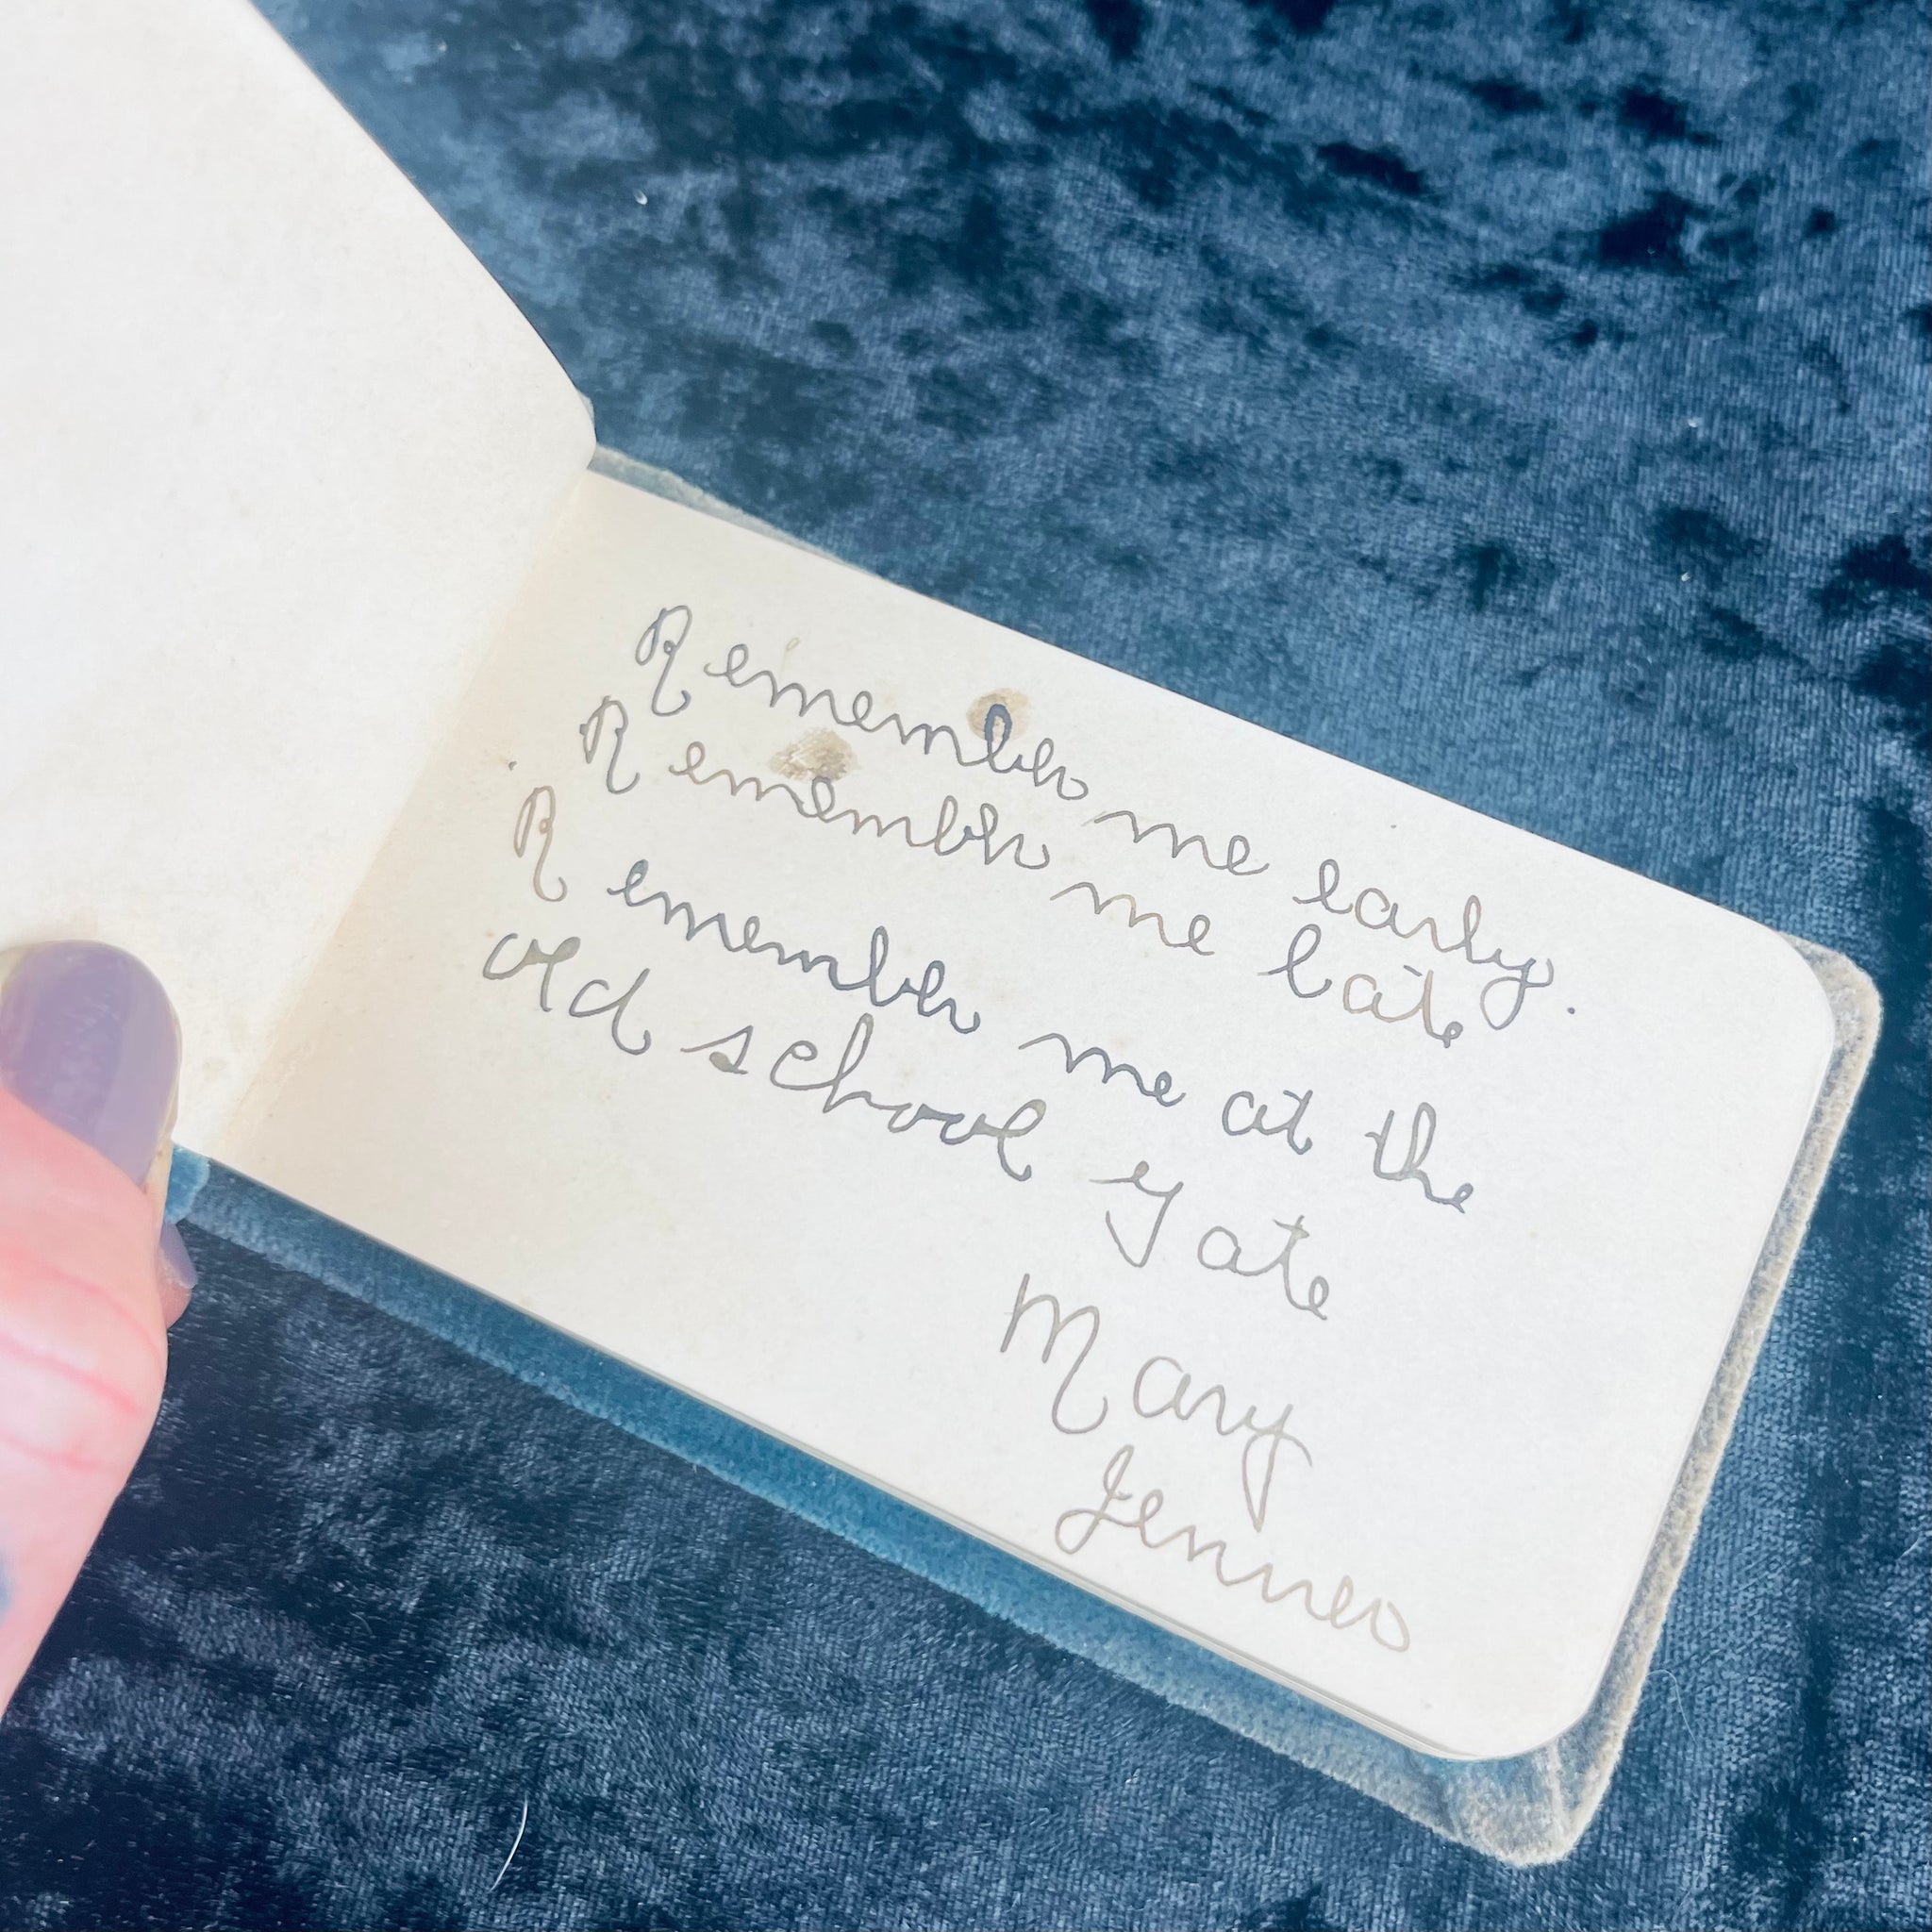 Remember me early.
Remember me late
Remember me at the
old school gate
Mary